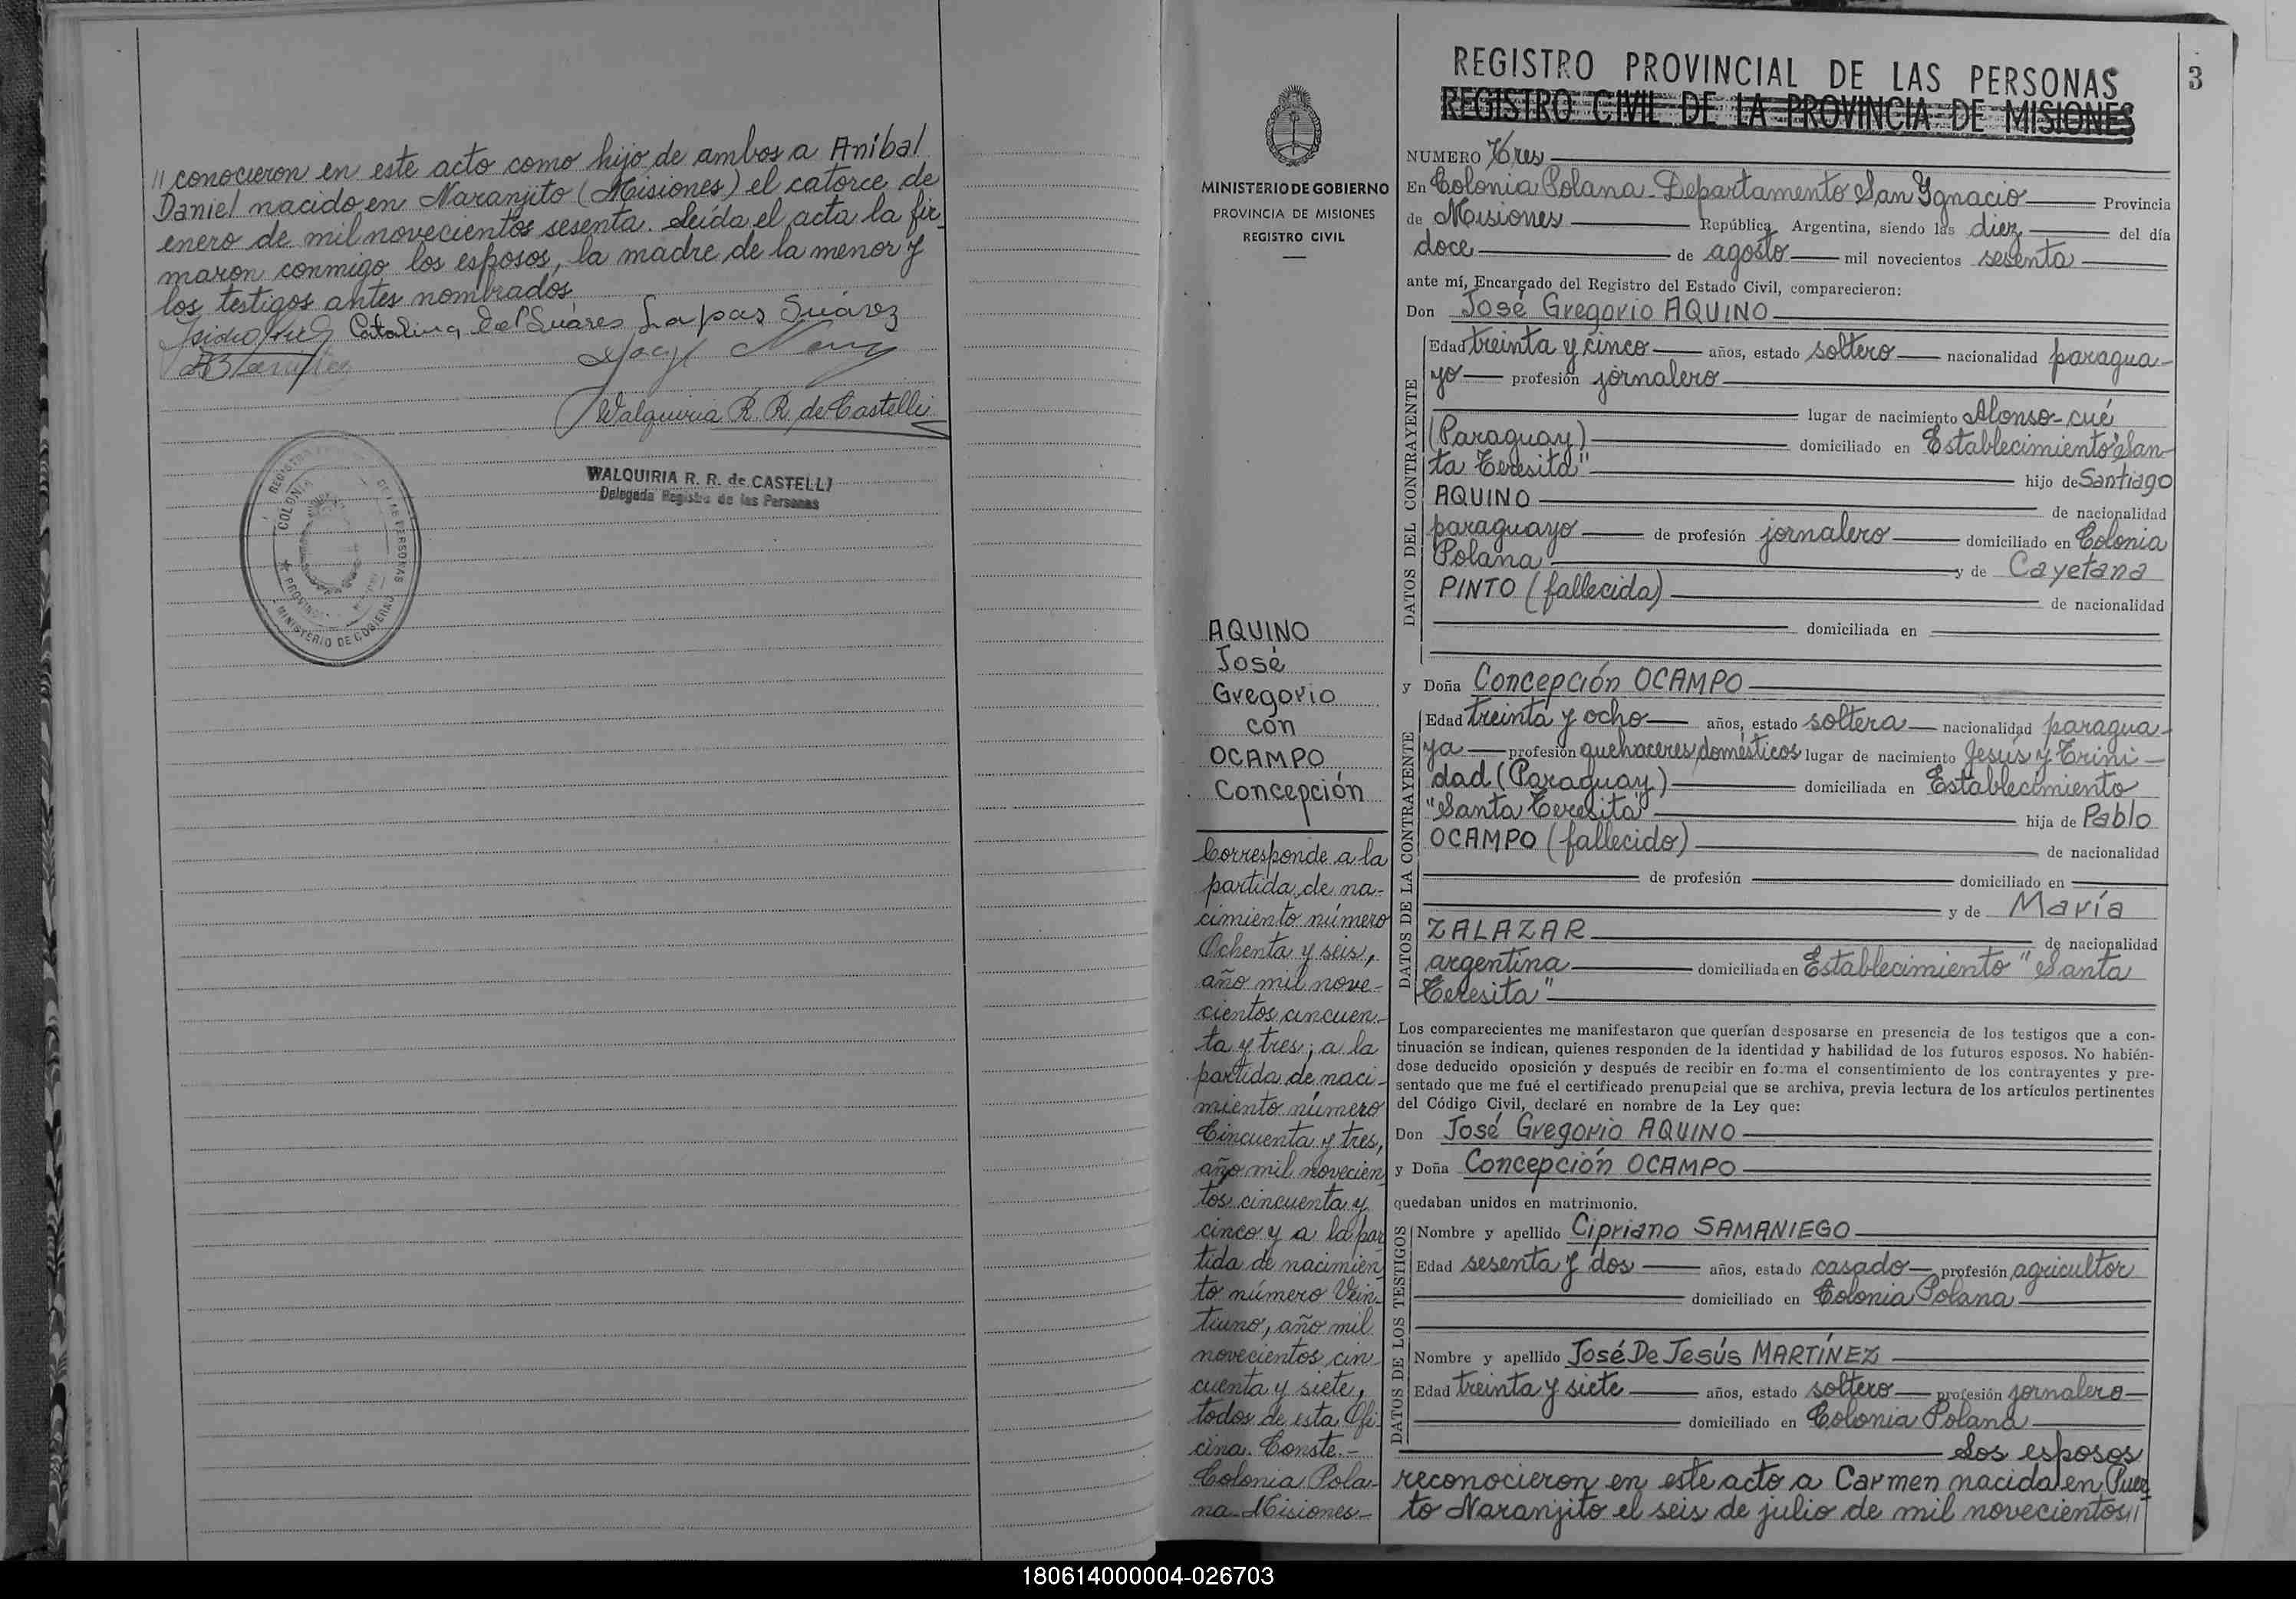 // conocieron en este acto como hijo de ambos a Aníbal
Daniel nacido en Naranjito (Misiones) el catorce de
enero de mil novecientos sesenta. Leída el acta la fir-
maron conmigo los esposos, la madre de la menor y
los testigos antes nombrados.
Catalina del Suáres La pas Suárez
Walquiria R. R. de Castelli
WALQUIRIA R. R. de CASTELLI
Delegada Registro de las Personas
REGISTRO DE LAS PERSONAS
COLONIA
MINISTERIO DE GOBIERNO
MINISTERIO DE GOBIERNO
PROVINCIA DE MISIONES
REGISTRO CIVIL
AQUINO
José
Gregorio
con
OCAMPO
Concepción
Corresponde a la
partida de na-
cimiento número
Ochenta y seis,
año mil nove-
cientos cincuen-
ta y tres; a la
partida de naci-
miento número
Cincuenta y tres,
año mil novecien
tos cincuenta y
cinco y a la par
tida de nacimien
to número Vein-
tiuno, año mil
novecientos cin-
cuenta y siete,
todos de esta Ofi-
cina. Conste.-
Colonia Pola-
na-Misiones-
REGISTRO PROVINCIAL DE LAS PERSONAS
REGISTRO CIVIL DE LA PROVINCIA DE MISIONES
3
NUMERO Tres
En Colonia Polana-Departamento San Ignacio Provincia
de Misiones República Argentina, siendo las diez del día
doce de agosto mil novecientos sesenta
ante mí, Encargado del Registro del Estado Civil, comparecieron:
Don José Gregorio AQUINO
DATOS DEL CONTRAYENTE
Edad treinta y cinco años, estado soltero nacionalidad paragua-
yo profesión jornalero
lugar de nacimiento Alonso-cué
(Paraguay) domiciliado en Establecimiento "San-
ta Teresita"
hijo de Santiago
AQUINO de nacionalidad
paraguayo de profesión jornalero domiciliado en Colonia
Polana y de Cayetana
PINTO (fallecida) de nacionalidad
domiciliada en
y Doña Concepción OCAMPO
DATOS DE LA CONTRAYENTE
Edad treinta y ocho años, estado soltera nacionalidad paragua-
ya profesión quehaceres domésticos lugar de nacimiento Jesús y Trini-
dad (Paraguay) domiciliada en Establecimiento
"Santa Teresita" hija de Pablo
OCAMPO (fallecido) de nacionalidad
de profesión domiciliado en
y de María
ZALAZAR de nacionalidad
argentina domiciliada en Establecimiento "Santa
Teresita"
Los comparecientes me manifestaron que querían desposarse en presencia de los testigos que a con-
tinuación se indican, quienes responden de la identidad y habilidad de los futuros esposos. No habién-
dose deducido oposición y después de recibir en forma el consentimiento de los contrayentes y pre-
sentado que me fué el certificado prenupcial que se archiva, previa lectura de los artículos pertinentes
del Código Civil, declaré en nombre de la Ley que:
Don José Gregorio AQUINO
y Doña Concepción OCAMPO
quedaban unidos en matrimonio.
DATOS DE LOS TESTIGOS
Nombre y apellido Cipriano SAMANIEGO
Edad sesenta y dos años, estado casado profesión agricultor
domiciliado en Colonia Polana
Nombre y apellido José De Jesús MARTÍNEZ
Edad treinta y siete años, estado soltero profesión jornalero
domiciliado en Colonia Polana
Los esposos
reconocieron en este acto a Carmen nacida en Puer-
to Naranjito el seis de julio de mil novecientos//
180614000004-026703